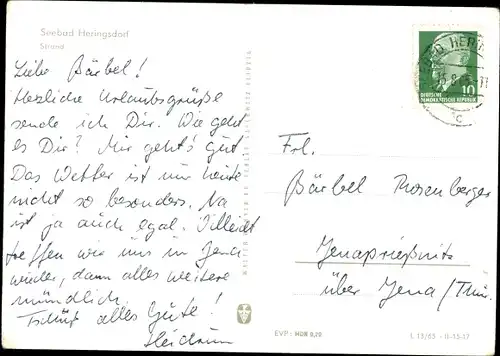 Seebad Heringsdorf
Strand
Liebe Bärbel!
Herzliche Urlaubsgrüße
sende ich Dir. Wie geht
es Dir? Mir geht's gut
Das Wetter ist nur heute
nicht so besonders. Na
ist ja auch egal. Villeicht
treffen wir uns in Jena
wieder, dann alles weitere
mündlich.
Tschüß alles Gute!
Heidrun
HERIN
10
DEUTSCHE
DEMOKRATISCHE REPUBLIK
Frl.
Bärbel Rosenberger
Jenaprießnitz
über Jena/Thür.
EVP: MDN 0,20
L 13/65 · II-15-17